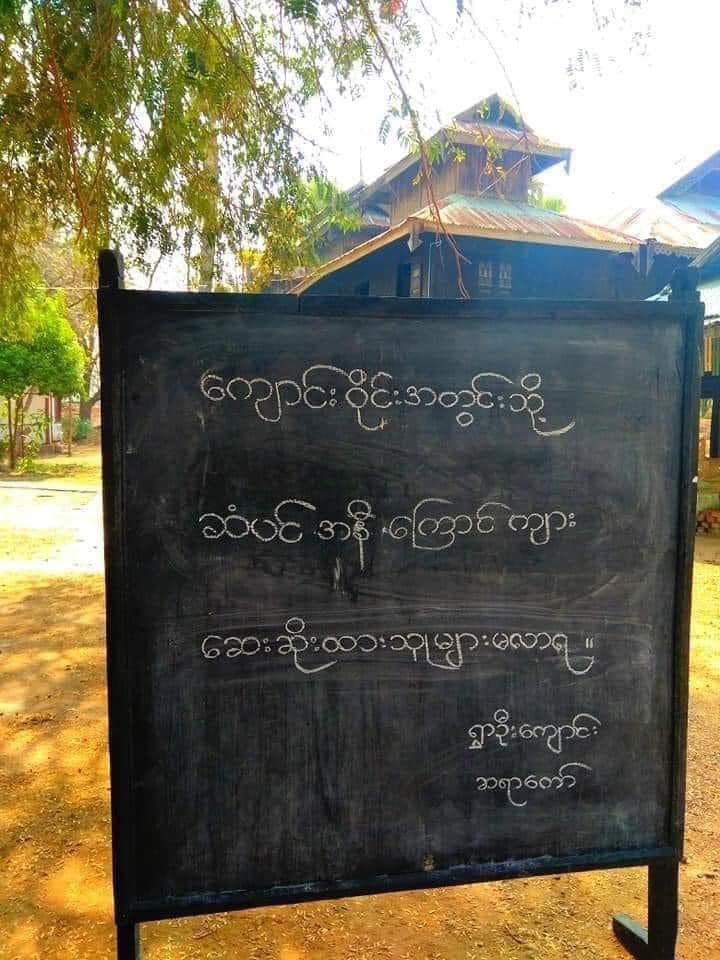 ကျောင်းဝိုင်းအတွင်းသို့
ဆံပင် အနီ ကြောင် ကျား
ဆေးဆိုးထားသူများမလာရ။
ရွှာဦးကျောင်း
ဆရာတော်